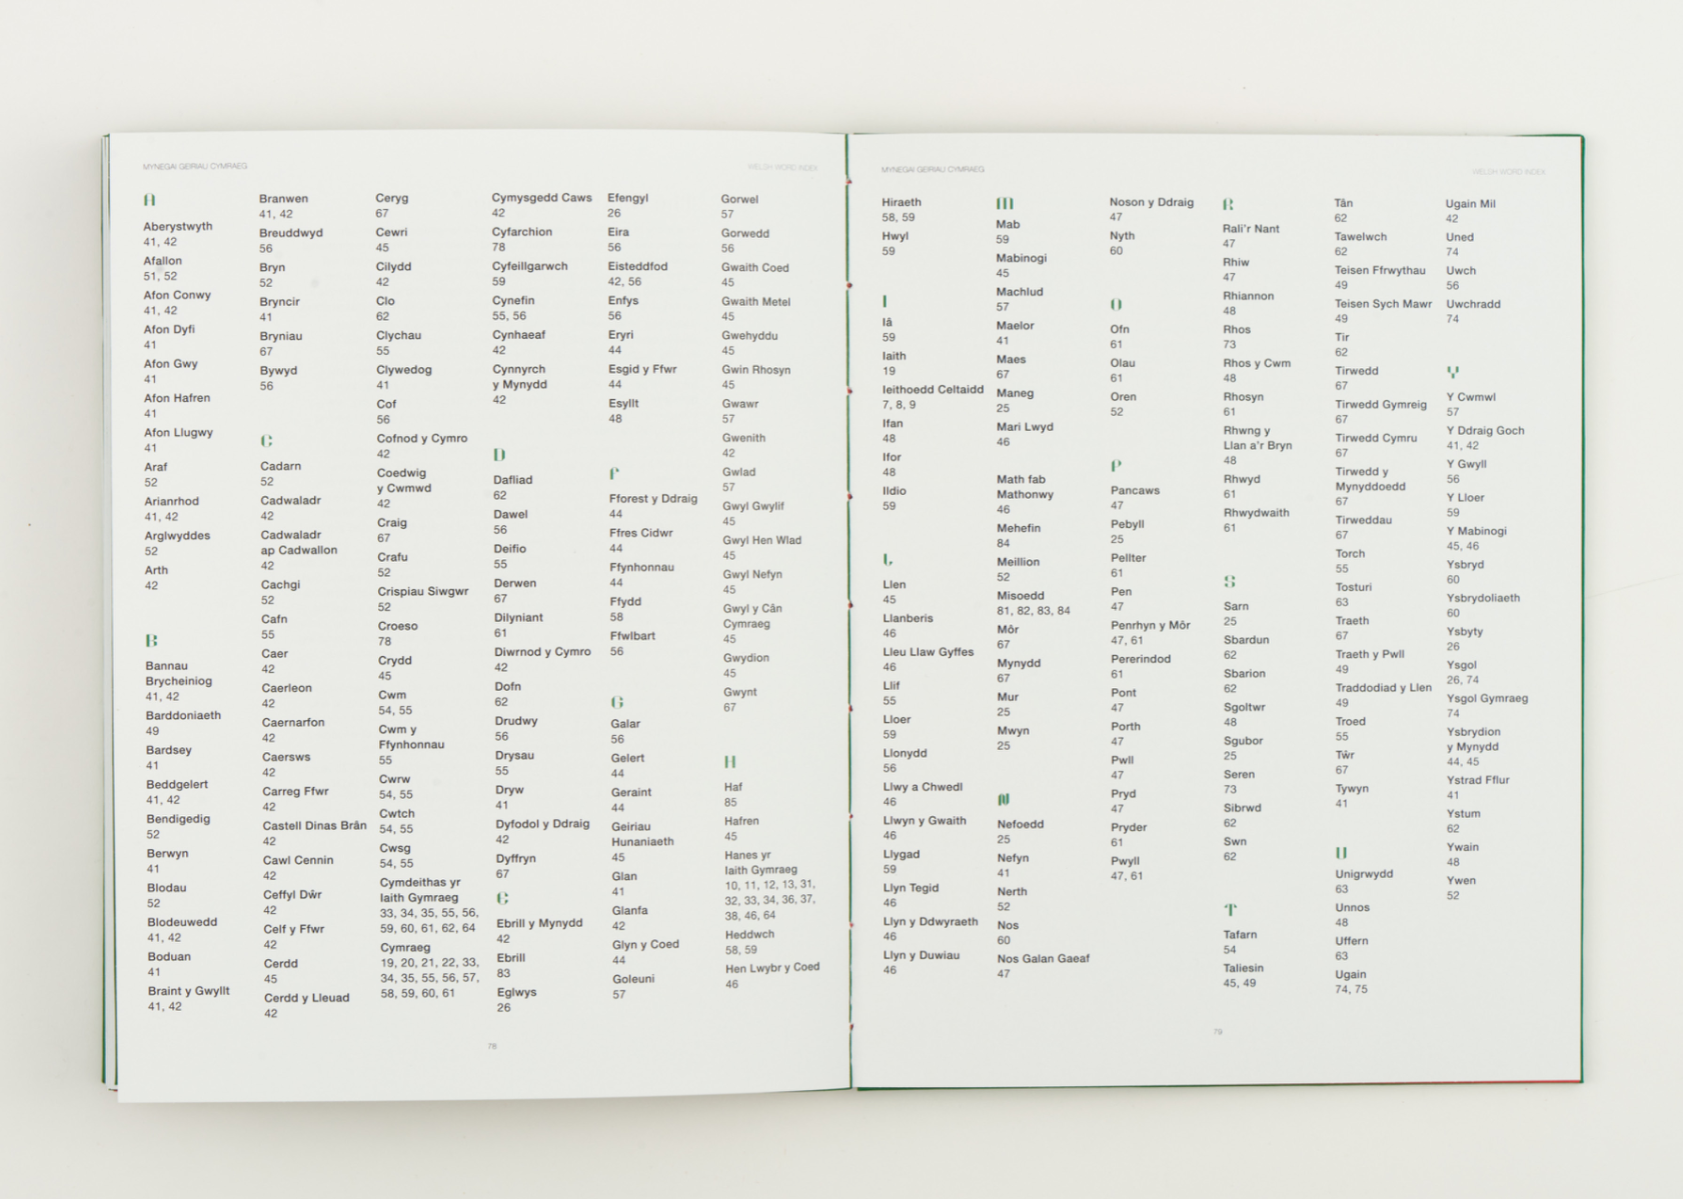 MYNEGAI GEIRIAU CYMRAEG
WELSH WORD INDEX
A
Aberystwyth
41, 42
Afallon
51, 52
Afon Conwy
41, 42
Afon Dyfi
41
Afon Gwy
41
Afon Hafren
41
Afon Llugwy
41
Araf
52
Arianrhod
41, 42
Arglwyddes
52
Arth
42
B
Bannau
Brycheiniog
41, 42
Barddoniaeth
49
Bardsey
41
Beddgelert
41, 42
Bendigedig
52
Berwyn
41
Blodau
52
Blodeuwedd
41, 42
Boduan
41
Braint y Gwyllt
41, 42
Branwen
41, 42
Breuddwyd
56
Bryn
52
Bryncir
41
Bryniau
67
Bywyd
56
C
Cadarn
52
Cadwaladr
42
Cadwaladr
ap Cadwallon
42
Cachgi
52
Cafn
55
Caer
42
Caerleon
42
Caernarfon
42
Caersws
42
Carreg Ffwr
42
Castell Dinas Brân
42
Cawl Cennin
42
Ceffyl Dŵr
42
Celf y Ffwr
42
Cerdd
45
Cerdd y Lleuad
42
Ceryg
67
Cewri
45
Cilydd
42
Clo
62
Clychau
55
Clywedog
41
Cof
56
Cofnod y Cymro
42
Coedwig
y Cwmwd
42
Craig
67
Crafu
52
Crispiau Siwgwr
52
Croeso
78
Crydd
45
Cwm
54, 55
Cwm y
Ffynhonnau
55
Cwrw
54, 55
Cwtch
54, 55
Cwsg
54, 55
Cymdeithas yr
Iaith Gymraeg
33, 34, 35, 55, 56,
59, 60, 61, 62, 64
Cymraeg
19, 20, 21, 22, 33,
34, 35, 55, 56, 57,
58, 59, 60, 61
Cymysgedd Caws
42
Cyfarchion
78
Cyfeillgarwch
59
Cynefin
55, 56
Cynhaeaf
42
Cynnyrch
y Mynydd
42
D
Dafliad
62
Dawel
56
Deifio
55
Derwen
67
Dilyniant
61
Diwrnod y Cymro
42
Dofn
62
Drudwy
56
Drysau
55
Dryw
41
Dyfodol y Ddraig
42
Dyffryn
67
E
Ebrill y Mynydd
42
Ebrill
83
Eglwys
26
Efengyl
26
Eira
56
Eisteddfod
42, 56
Enfys
56
Eryri
44
Esgid y Ffwr
44
Esyllt
48
F
Fforest y Ddraig
44
Ffres Cidwr
44
Ffynhonnau
44
Ffydd
58
Ffwlbart
56
G
Galar
56
Gelert
44
Geraint
44
Geiriau
Hunaniaeth
45
Glan
41
Glanfa
42
Glyn y Coed
44
Goleuni
57
Gorwel
57
Gorwedd
56
Gwaith Coed
45
Gwaith Metel
45
Gwehyddu
45
Gwin Rhosyn
45
Gwawr
57
Gwenith
42
Gwlad
57
Gwyl Gwylif
45
Gwyl Hen Wlad
45
Gwyl Nefyn
45
Gwyl y Cân
Cymraeg
45
Gwydion
45
Gwynt
67
H
Haf
85
Hafren
45
Hanes yr
Iaith Gymraeg
10, 11, 12, 13, 31,
32, 33, 34, 36, 37,
38, 46, 64
Heddwch
58, 59
Hen Lwybr y Coed
46
78
MYNEGAI GEIRIAU CYMRAEG
WELSH WORD INDEX
Hiraeth
58, 59
Hwyl
59
I
Iâ
59
Iaith
19
Ieithoedd Celtaidd
7, 8, 9
Ifan
48
Ifor
48
Ildio
59
L
Llen
45
Llanberis
46
Lleu Llaw Gyffes
46
Llif
55
Lloer
59
Llonydd
56
Llwy a Chwedl
46
Llwyn y Gwaith
46
Llygad
59
Llyn Tegid
46
Llyn y Ddwyraeth
46
Llyn y Duwiau
46
M
Mab
59
Mabinogi
45
Machlud
57
Maelor
41
Maes
67
Maneg
25
Mari Lwyd
46
Math fab
Mathonwy
46
Mehefin
84
Meillion
52
Misoedd
81, 82, 83, 84
Môr
67
Mynydd
67
Mur
25
Mwyn
25
N
Nefoedd
25
Nefyn
41
Nerth
52
Nos
60
Nos Galan Gaeaf
47
Noson y Ddraig
47
Nyth
60
O
Ofn
61
Olau
61
Oren
52
P
Pancaws
47
Pebyll
25
Pellter
61
Pen
47
Penrhyn y Môr
47, 61
Pererindod
61
Pont
47
Porth
47
Pwll
47
Pryd
47
Pryder
61
Pwyll
47, 61
R
Rali'r Nant
47
Rhiw
47
Rhiannon
48
Rhos
73
Rhos y Cwm
48
Rhosyn
61
Rhwng y
Llan a'r Bryn
48
Rhwyd
61
Rhwydwaith
61
S
Sarn
25
Sbardun
62
Sbarion
62
Sgoltwr
48
Sgubor
25
Seren
73
Sibrwd
62
Swn
62
T
Tafarn
54
Taliesin
45, 49
Tân
62
Tawelwch
62
Teisen Ffrwythau
49
Teisen Sych Mawr
49
Tir
62
Tirwedd
67
Tirwedd Gymreig
67
Tirwedd Cymru
67
Tirwedd y
Mynyddoedd
67
Tirweddau
67
Torch
55
Tosturi
63
Traeth
67
Traeth y Pwll
49
Traddodiad y Llen
49
Troed
55
Tŵr
67
Tywyn
41
U
Unigrwydd
63
Unnos
48
Uffern
63
Ugain
74, 75
Ugain Mil
42
Uned
74
Uwch
56
Uwchradd
74
Y
Y Cwmwl
57
Y Ddraig Goch
41, 42
Y Gwyll
56
Y Lloer
59
Y Mabinogi
45, 46
Ysbryd
60
Ysbrydoliaeth
60
Ysbyty
26
Ysgol
26, 74
Ysgol Gymraeg
74
Ysbrydion
y Mynydd
44, 45
Ystrad Fflur
41
Ystum
62
Ywain
48
Ywen
52
79